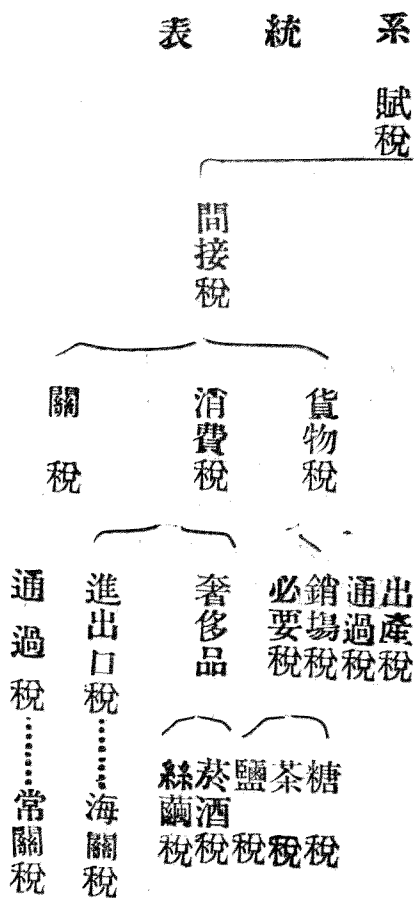 系統表
賦稅
間接稅
貨物稅
消費稅
關稅
出產稅
通過稅
銷場稅
必要稅
奢侈品
進出口稅……海關稅
通過稅……常關稅
糖稅
茶稅
鹽稅
菸酒稅
絲繭稅